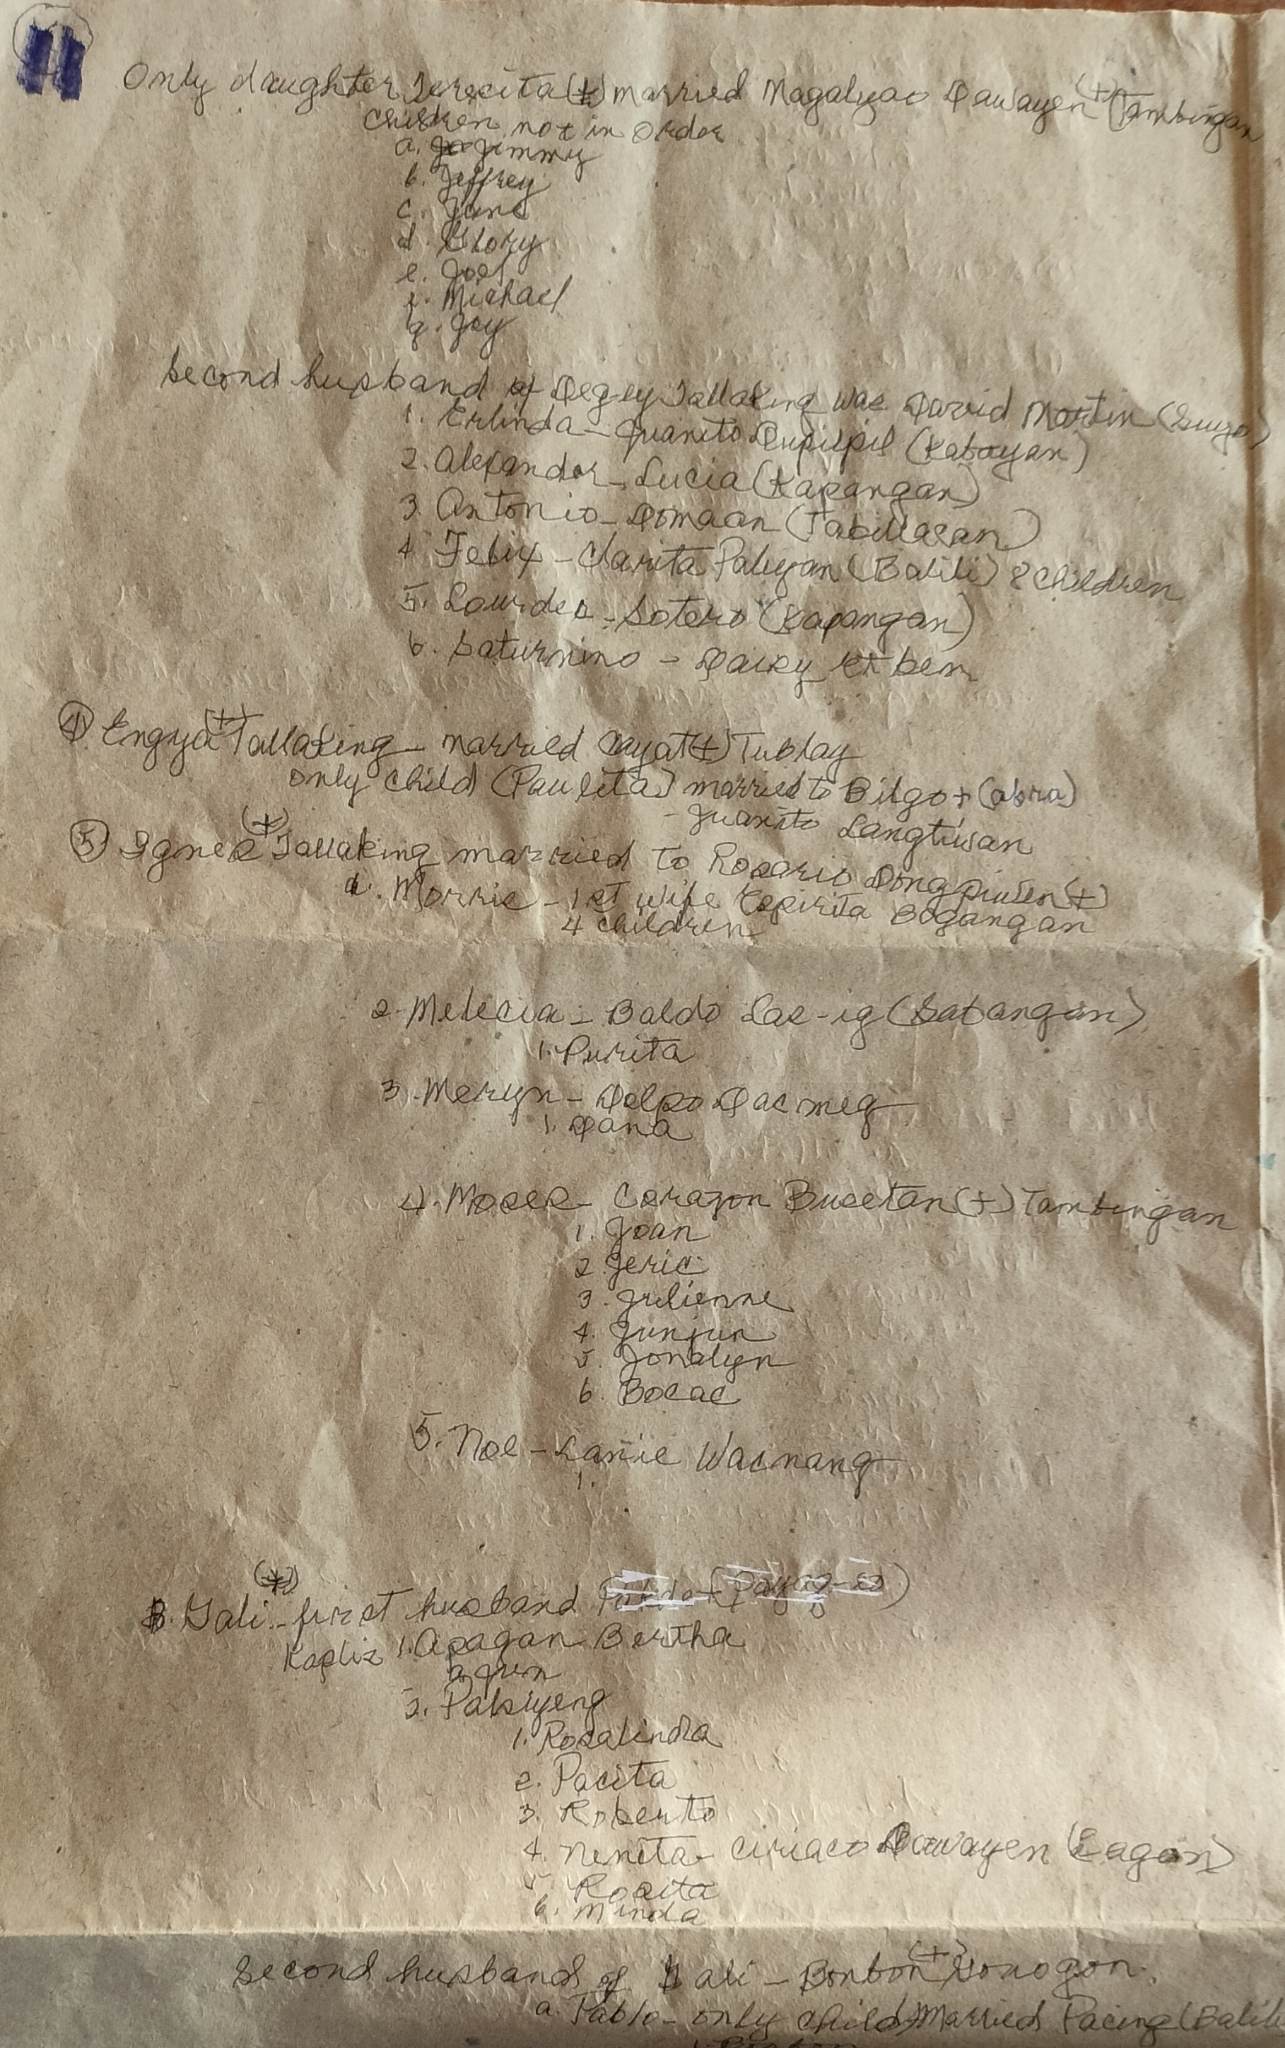 11
Only daughter Terecita (+) married Magalyao Dawayen (+) (Tambingan
Children not in order
a. Jimmy
b. Jeffrey
c. June
d. Glory
e. Joel
f. Michael
g. Joy
Second husband of Degey Tallaking was David Martin (Suyo)
1. Erlinda - Juanito Dupilpil (Kabayan)
2. Alexander - Lucia (Kapangan)
3. Antonio - Domaan (Tabillasan)
4 Felix - Clarita Paliyan (Balili) 8 children
5. Lourdes - Sotero (Kapangan)
6. Saturnino - Daisy
4 Engya (+) Tallaking - married Cayat (+) Tublay
only child (Paulita) married to Bilgo + (abra)
- Juanito Langtiwan
5 Agnes (+) Tallaking married to Rosario (+)
Morris - 1st wife Espirita Bogangan
4 children
2. Melecia - Baldo Las-ig (Sabangan)
1. Purita
3. Meryn - Delpo Dacmeg
1. Dana
4. Moses - Corazon Busetan (+) Tambingan
1. Joan
2 Jeric
3. Julienne
4. Junjun
5. Jonalyn
6. Bocac
5. Noe - Lanie Wacnang
1.
B. Gali (+) - first husband
Kapliz 1. Apagan Bertha
a. Jun
2. Pakiyeng
1. Rosalinda
2. Pacita
3. Roberto
4. Nenita - Ciriaco Dawayen (Lagan)
5. Rosita
6. Minda
Second husband of Gali - Bonbon (+) Gonogon.
a. Pablo - only child Married Pacing (Balili